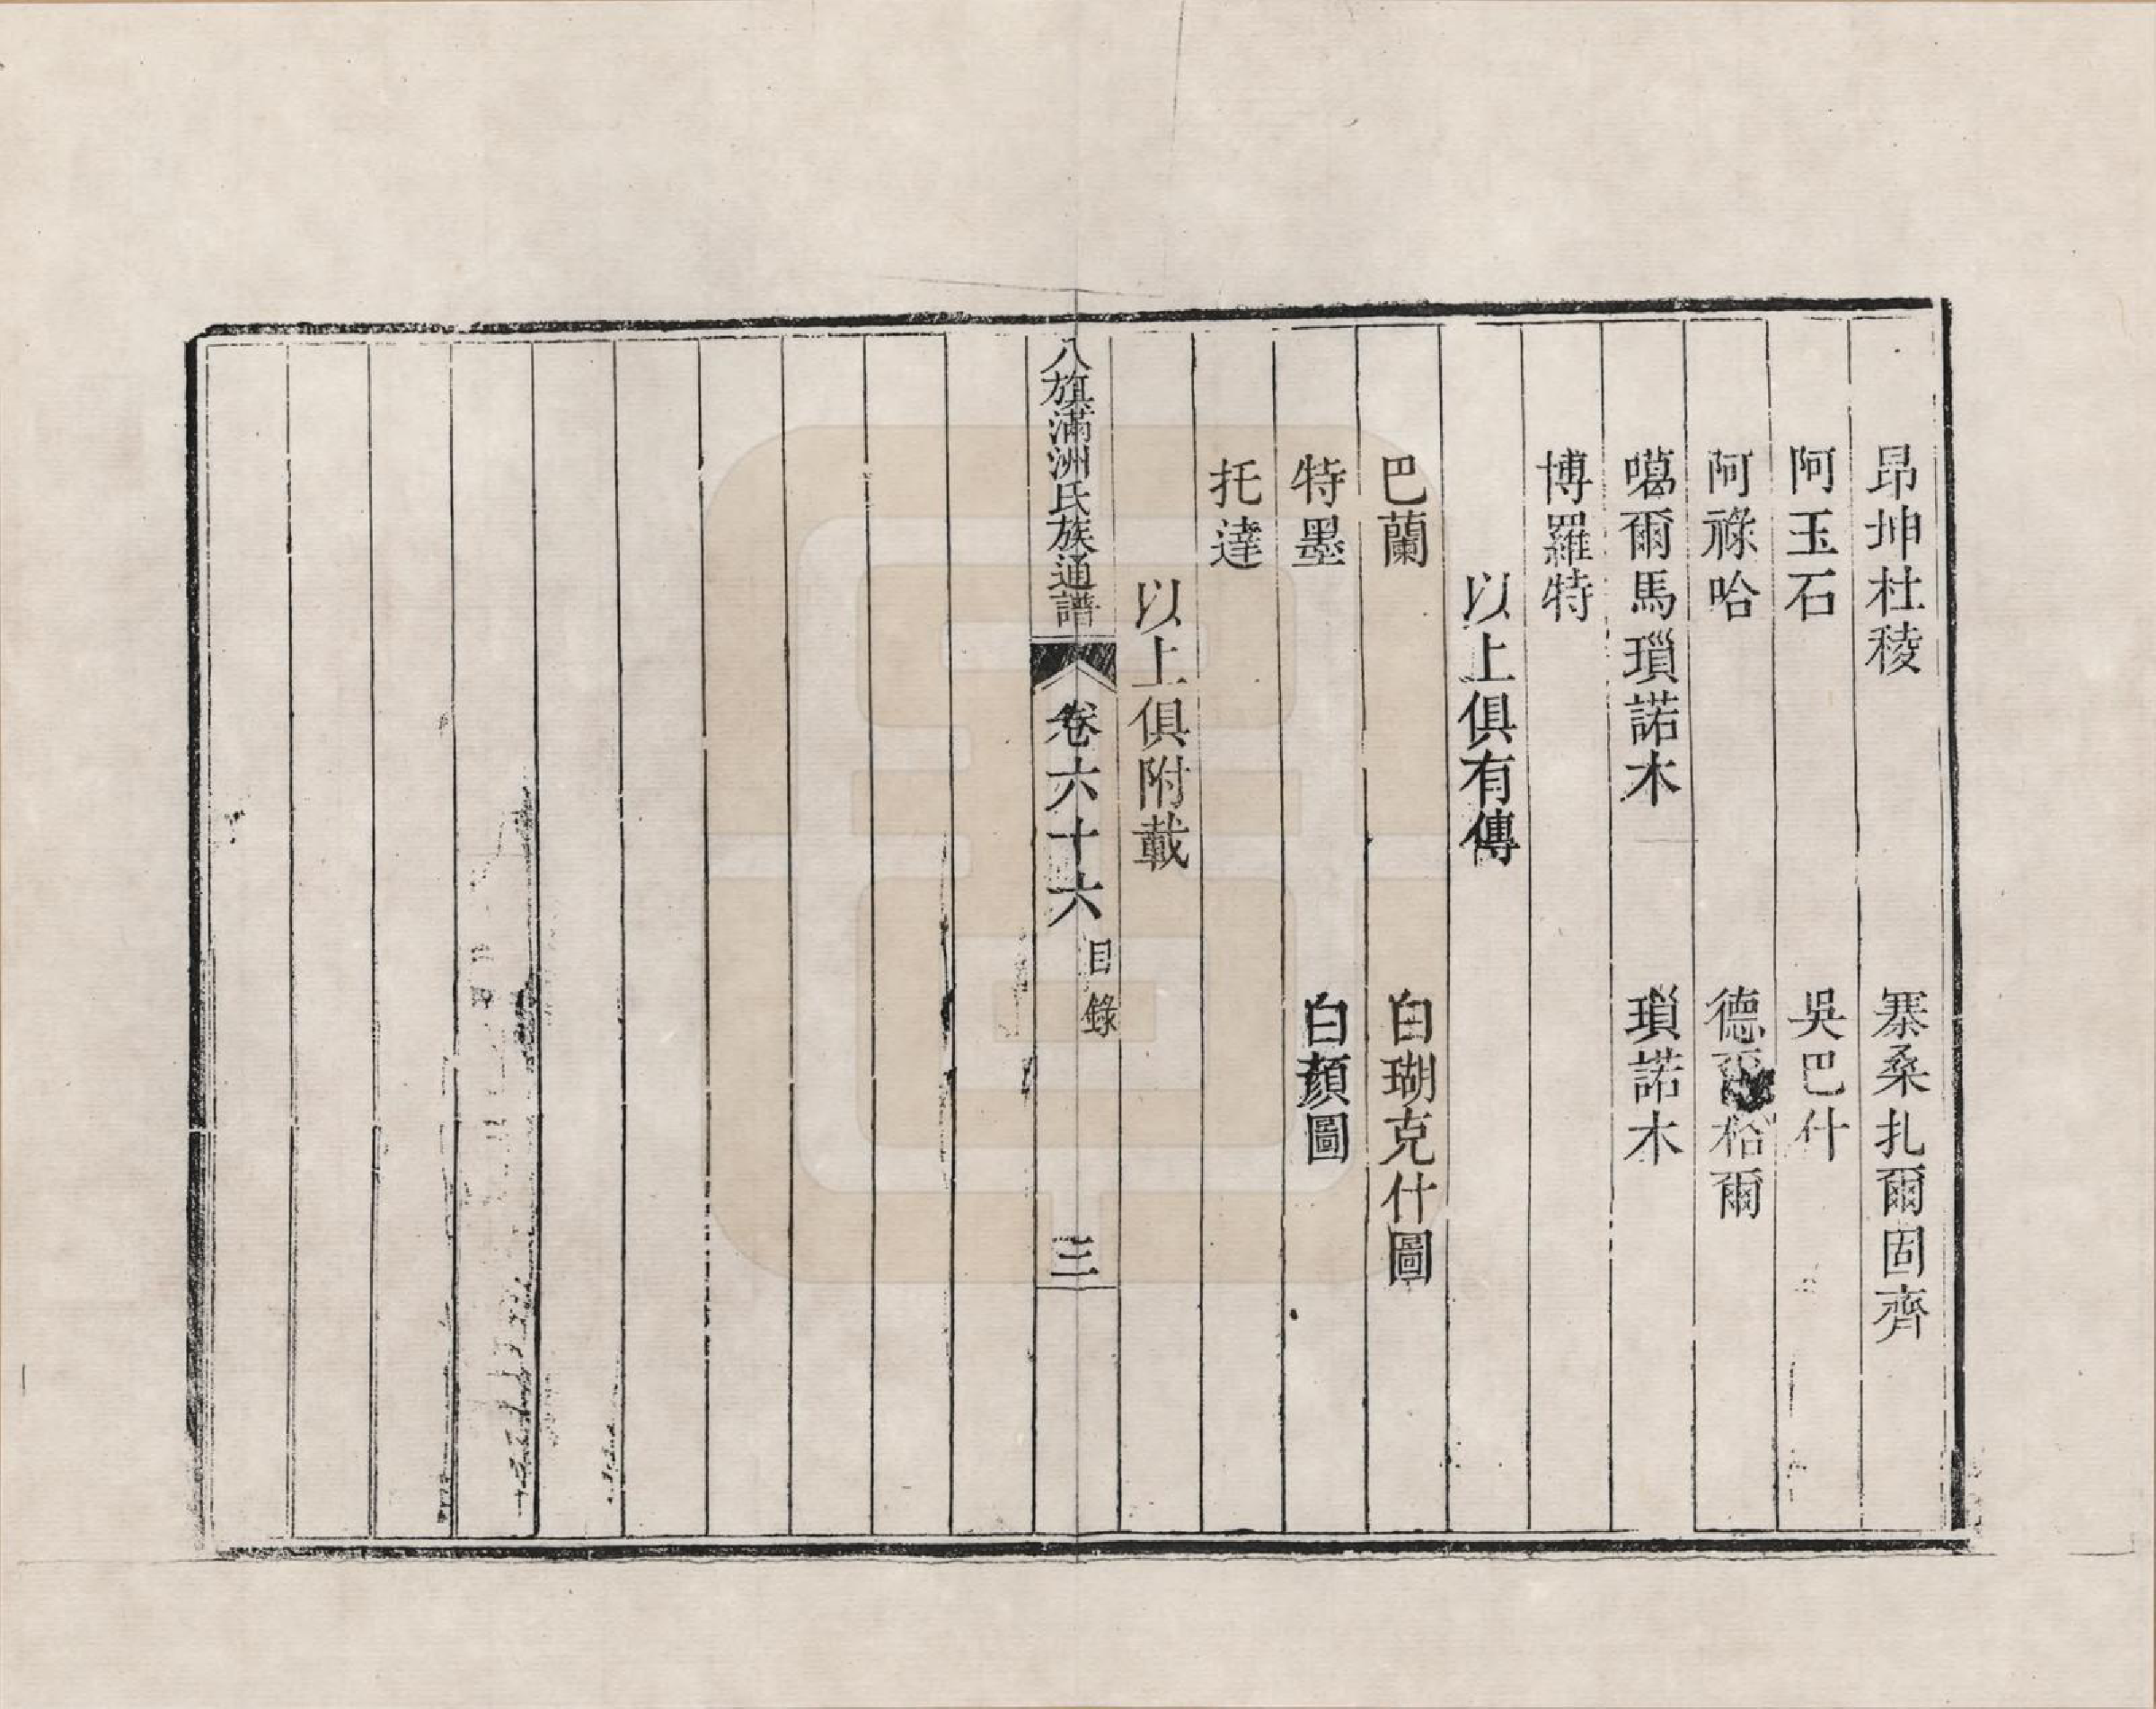 昂坤杜稜　寨桑扎爾固齊
阿玉石　吳巴什
阿祿哈　德格爾
噶爾馬瑣諾木　瑣諾木
博羅特
以上俱有傳
巴蘭　白瑚克什圖
特墨　白顏圖
托達
以上俱附載
八旗滿洲氏族通譜　卷六十六　目錄　三